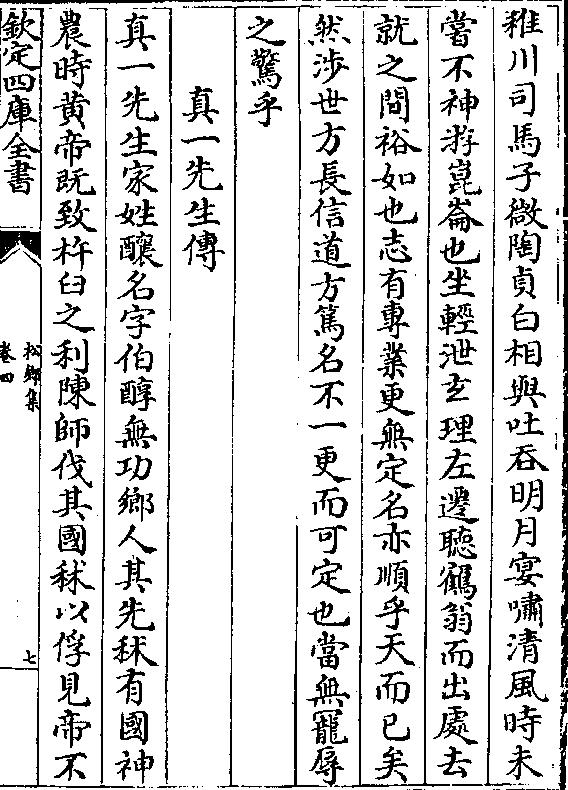 稚川司馬子微陶貞白相與吐吞明月宴嘯清風時未
嘗不神游崑崙也坐輕泄玄理左遷聽鶴翁而出處去
就之間裕如也志有專業更無定名亦順乎天而已矣
然涉世方長信道方篤名不一更而可定也當無寵辱
之驚乎
真一先生傳
真一先生家姓釀名字伯醇無功鄉人其先秫有國神
農時黄帝既致杵臼之利陳師伐其國秫以俘見帝不
欽定四庫全書
松鄉集
卷四
七